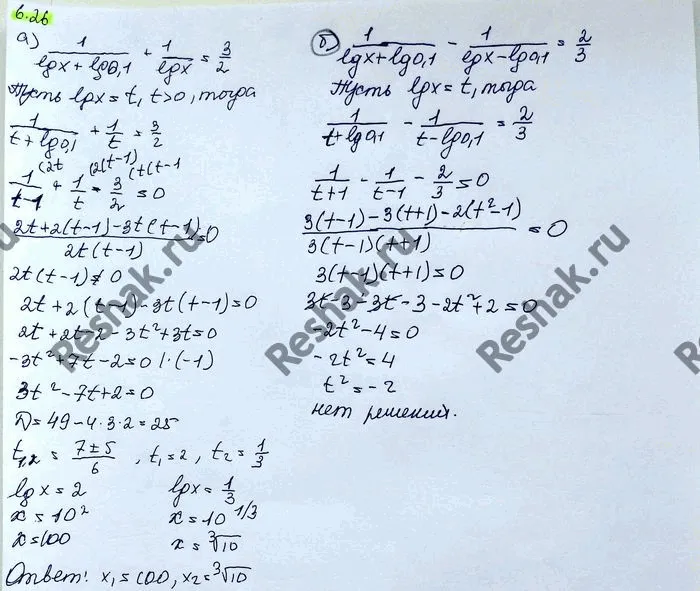 6.26
а) 1/(lgx + lg0,1) + 1/lgx = 3/2
Пусть lgx = t, t>0, тогда
1/(t + lg0,1) + 1/t = 3/2
1/(t-1) (2t + 1/t (2(t-1) - 3/2 (t(t-1 = 0
(2t+2(t-1)-3t(t-1))/(2t(t-1)) = 0
2t(t-1) ≠ 0
2t+2(t-1)-3t(t-1)=0
2t+2t-2-3t²+3t=0
-3t²+7t-2=0 | · (-1)
3t²-7t+2=0
D=49-4·3·2=25
t₁,₂ = (7±5)/6 , t₁=2, t₂ = 1/3
lgx=2 lgx = 1/3
x=10² x=10^(1/3)
x=100 x = ³√10
Ответ: x₁=100, x₂=³√10
б) 1/(lgx+lg0,1) - 1/(lgx-lg0,1) = 2/3
Пусть lgx = t, тогда
1/(t+lg0,1) - 1/(t-lg0,1) = 2/3
1/(t+1) - 1/(t-1) - 2/3 = 0
(3(t-1)-3(t+1)-2(t²-1))/(3(t-1)(t+1)) = 0
3(t-1)(t+1)=0
3t-3-3t-3-2t²+2=0
-2t²-4=0
-2t²=4
t²=-2
нет решений.
Reshak.ru
Reshak.ru
Reshak.ru